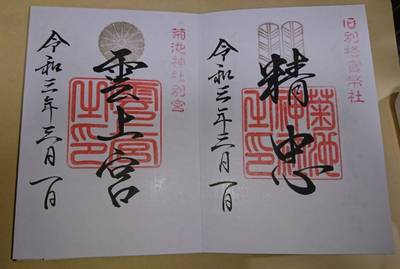 旧別格官幣社
精忠
菊池神社印
令和三年三月一日
菊池神社別宮
雲上宮
雲上宮之印
令和三年三月一日